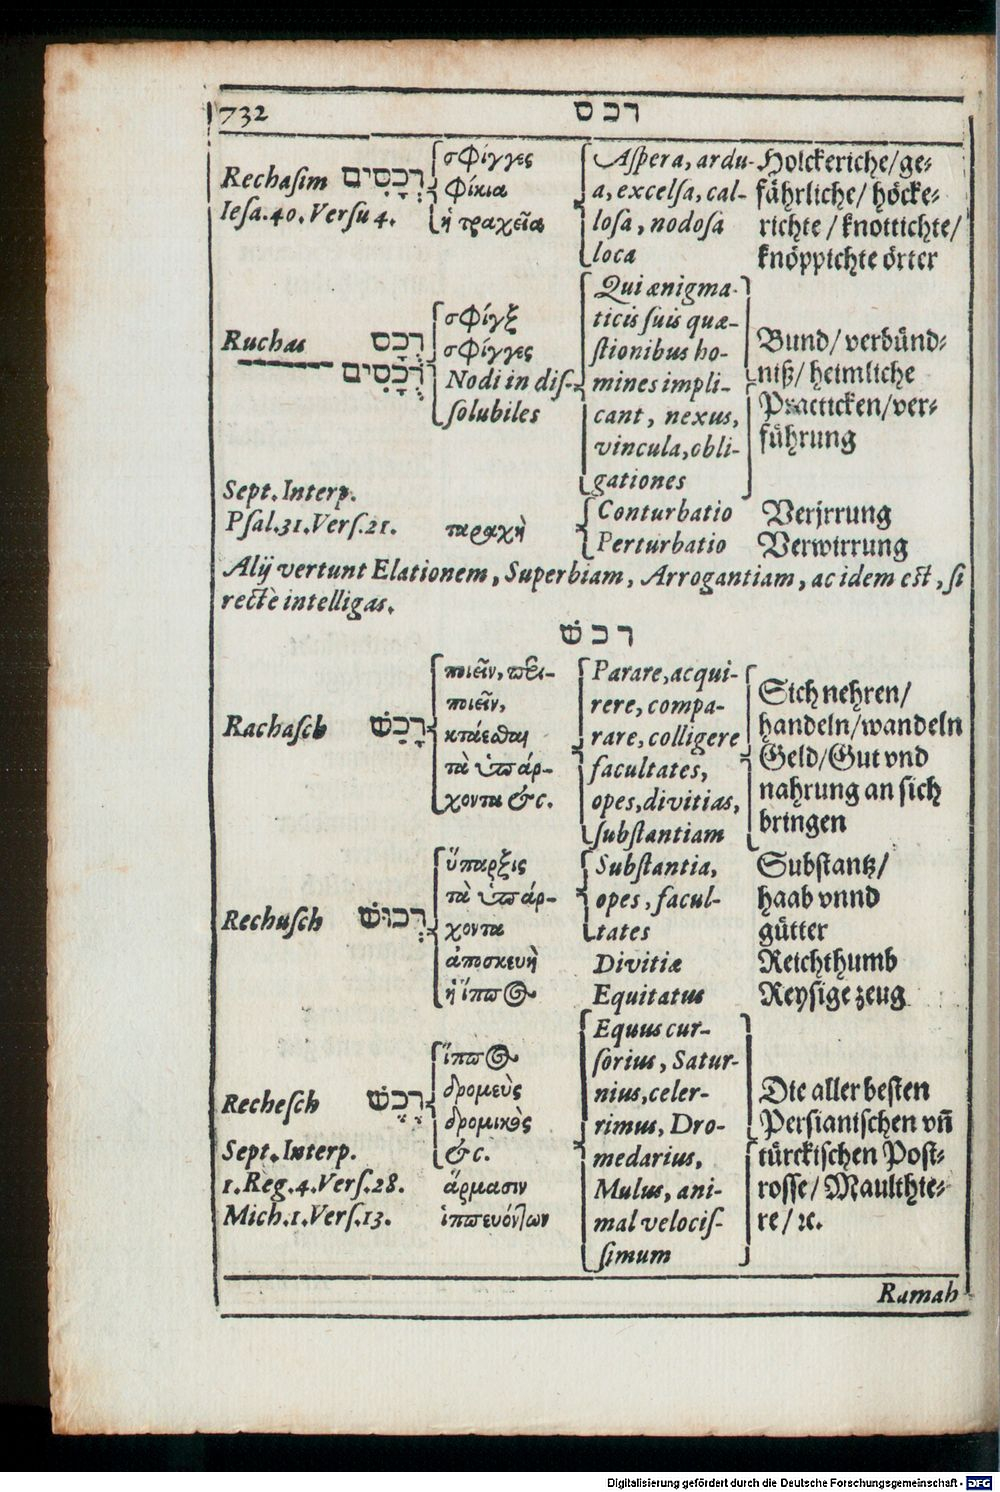 732
רכס
Rechasim רְכָסִים
Iesa.40.Versu 4.
σφίγγες
φίκια
ἡ τραχεῖα
Aspera, ardu-
a, excelsa, cal-
losa, nodosa
loca
Holckeriche/ge-
fährliche/ höcke-
richte / knottichte/
knöppichte örter
Ruchas רֻכָס
רֻכָסִים
σφίγξ
σφίγγες
Nodi in dis-
solubiles
Qui ænigma-
ticis suis quæ-
stionibus ho-
mines impli-
cant, nexus,
vincula, obli-
gationes
Bund/ verbünd-
niß/ heimliche
Practicken/ver-
führung
Sept. Interp.
Psal.31.Vers.21.
ταραχὴ
Conturbatio
Perturbatio
Verjrrung
Verwirrung
Alij vertunt Elationem, Superbiam, Arrogantiam, ac idem est, si
rectè intelligas.
רכשׁ
Rachasch רָכַשׁ
ποιεῖν, πεϊ-
ποιεῖν,
κτάεσθαι
τὰ ὑπάρ-
χοντα &c.
Parare, acqui-
rere, compa-
rare, colligere
facultates,
opes, divitias,
substantiam
Sich nehren/
handeln/wandeln
Geld/Gut vnd
nahrung an sich
bringen
Rechusch רְכוּשׁ
ὕπαρξις
τὰ ὑπάρ-
χοντα
ἀποσκευὴ
ἡ ἵππος
Substantia,
opes, facul-
tates
Divitiæ
Equitatus
Substantz/
haab vnnd
gütter
Reichthumb
Reysige zeug
Rechesch רֶכֶשׁ
Sept. Interp.
1.Reg.4.Vers.28.
Mich.1.Vers.13.
ἵππος
δρομεὺς
δρομικὸς
&c.
ἅρμασιν
ἱππευόντων
Equus cur-
sorius, Satur-
nius, celer-
rimus, Dro-
medarius,
Mulus, ani-
mal velocis-
simum
Die aller besten
Persianischen vñ
türckischen Post-
rosse/ Maulthie-
re/ ꝛc.
Ramah
Digitalisierung gefördert durch die Deutsche Forschungsgemeinschaft - DFG